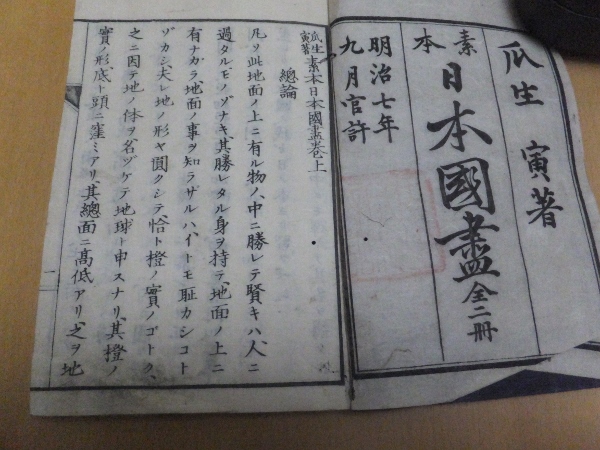 瓜生 寅著
素本
日本國盡 全二冊
明治七年
九月官許
瓜生寅著 素本日本國盡卷上
總論
凡ソ此地面ノ上ニ有ル物ノ中ニ勝レテ賢キハ、人ニ
過タルモノゾナキ、其勝レタル身ヲ持テ、地面ノ上ニ
有ナガラ、地面ノ事ヲ知ラザルハ、イトモ耻カシコト
ゾカシ、夫レ地ノ形ヤ圓クシテ、恰ト橙ノ實ノゴトク、
之ニ因テ地ノ体ヲ名ヅケテ地球ト申スナリ、其橙ノ
實ノ形、底ト頭ニ窪ミアリ、其總面ニ高低アリ、之ヲ地